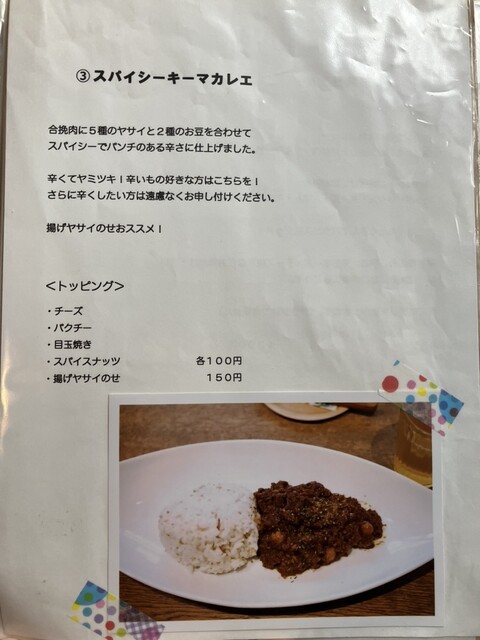 ③スパイシーキーマカレエ
合挽肉に５種のヤサイと２種のお豆を合わせて
スパイシーでパンチのある辛さに仕上げました。
辛くてヤミツキ！辛いもの好きな方はこちらを！
さらに辛くしたい方は遠慮なくお申し付けください。
揚げヤサイのせおススメ！
＜トッピング＞
・チーズ
・パクチー
・目玉焼き
・スパイスナッツ 各１００円
・揚げヤサイのせ １５０円